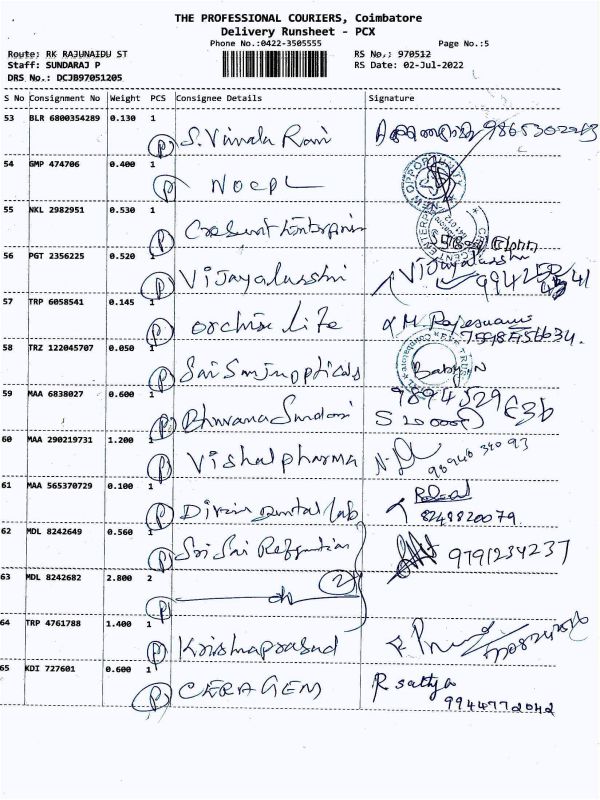 THE PROFESSIONAL COURIERS, Coimbatore
Delivery Runsheet - PCX
Phone No.:0422-3505555
Page No.:5
Route: RK RAJUNAIDU ST
RS No.: 970512
Staff: SUNDARAJ P
RS Date: 02-Jul-2022
DRS No.: DCJB97051205
S No Consignment No Weight PCS Consignee Details Signature
53 BLR 6800354289 0.130 1
P S. Vimala Rani
54 GMP 474706 0.400 1
P NOCPL
55 NKL 2982951 0.530 1
P
56 PGT 2356225 0.520 1
P Vijayalusshi Vijayalusshi
57 TRP 6058541 0.145 1
P Orchise life
58 TRZ 122045707 0.050 1
P Sai Sanju opticals Baby N
59 MAA 6838027 0.600 1
P
60 MAA 290219731 1.200 1
P Vishal pharma
61 MAA 565370729 0.100 1
P Dental lab
8248820079
62 MDL 8242649 0.560 1
P Sri Sai 9791234237
63 MDL 8242682 2.800 2
P do 2
64 TRP 4761788 1.400 1
P Krishnaprasad
65 KDI 727601 0.600 1
P CERAGEM R sathya
9944772042